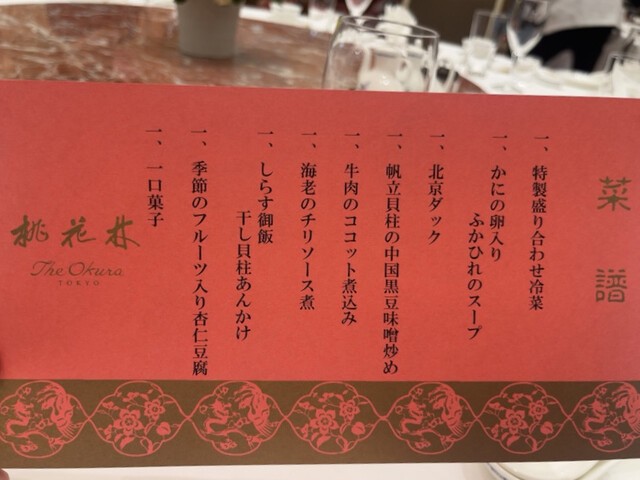 菜譜
一、特製盛り合わせ冷菜
一、かにの卵入り
ふかひれのスープ
一、北京ダック
一、帆立貝柱の中国黒豆味噌炒め
一、牛肉のココット煮込み
一、海老のチリソース煮
一、しらす御飯
干し貝柱あんかけ
一、季節のフルーツ入り杏仁豆腐
一、一口菓子
桃花林
The Okura
TOKYO